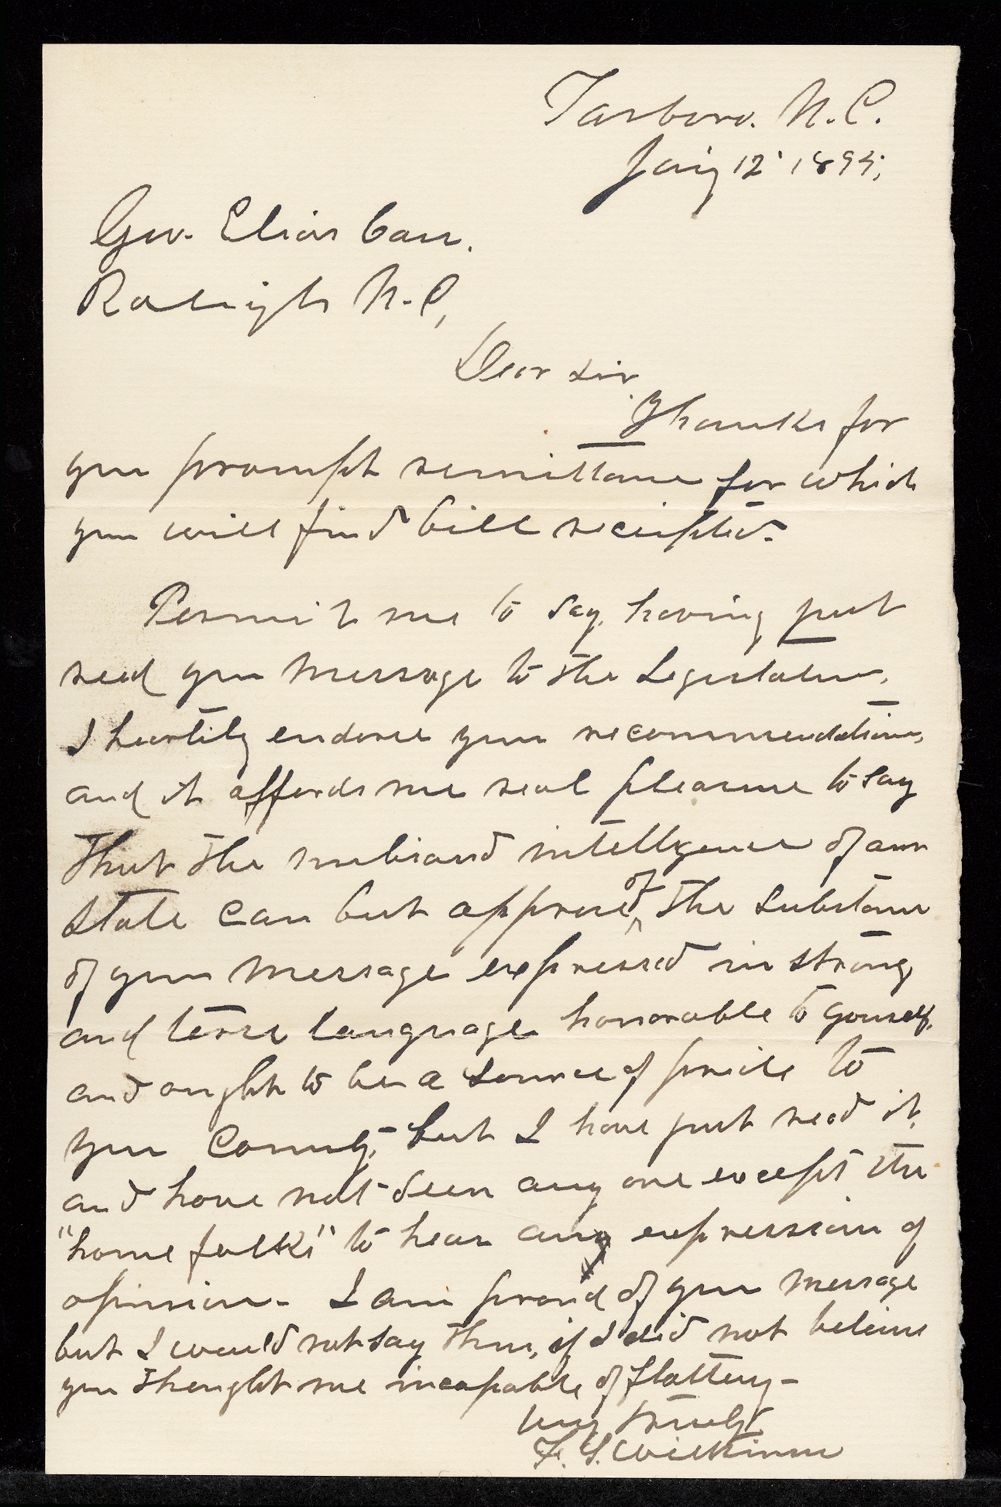 Tarboro. N. C.
Jany 12' 1895,
Gov. Elias Carr.
Raleigh N. C,
Dear Sir
Thanks for
your prompt remittance for which
you will find bill receipted.
Permit me to say, having just
read your message to the Legislature,
I heartily endorse your recommendations,
and it affords me real pleasure to say
that the unbiased intelligence of our
State can but approve of the substance
of your message expressed in strong
and terse language honorable to yourself,
and ought to be a source of pride to
your County, but I have just read it,
and have not seen any one except the
"home folks" to hear any expression of
opinion - I am proud of your message
but I would not say thus, if I did not believe
you thought me incapable of flattery -
Very truly
F. S. Wilkinson